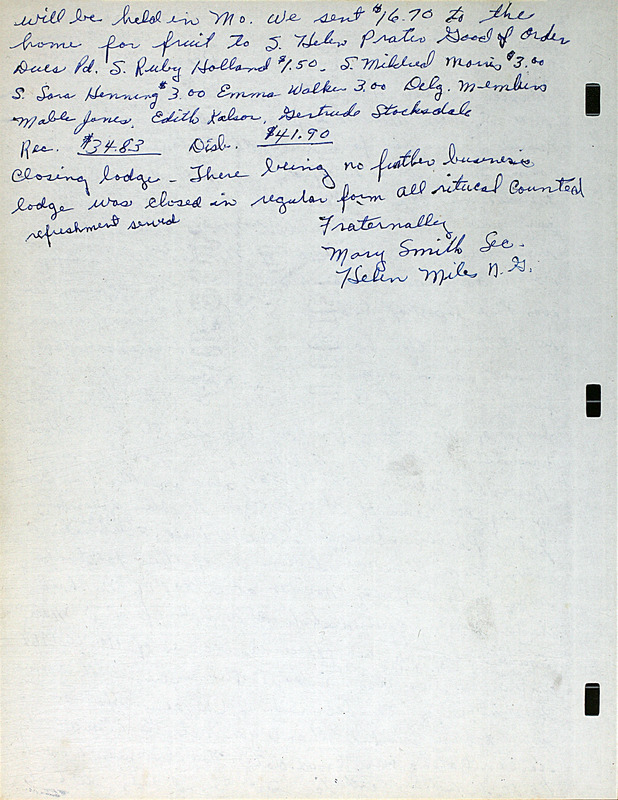 will be held in Mo. We sent $16.70 to the
home for fruit to S. Helen Prater Good of Order
Dues Pd. S. Ruby Holland $1.50. S. Mildred Morris $3.00
S. Sara Henning $3.00 Emma Walker 3.00 Delg. Members
Mable Jones, Edith Kalsor, Gertrude Stocksdale
Rec. $34.83 Disb. $41.90
Closing lodge - There being no further business
lodge was closed in regular form all ritual counted
refreshment served
Fraternally
Mary Smith Sec.
Helen Miles N.G.